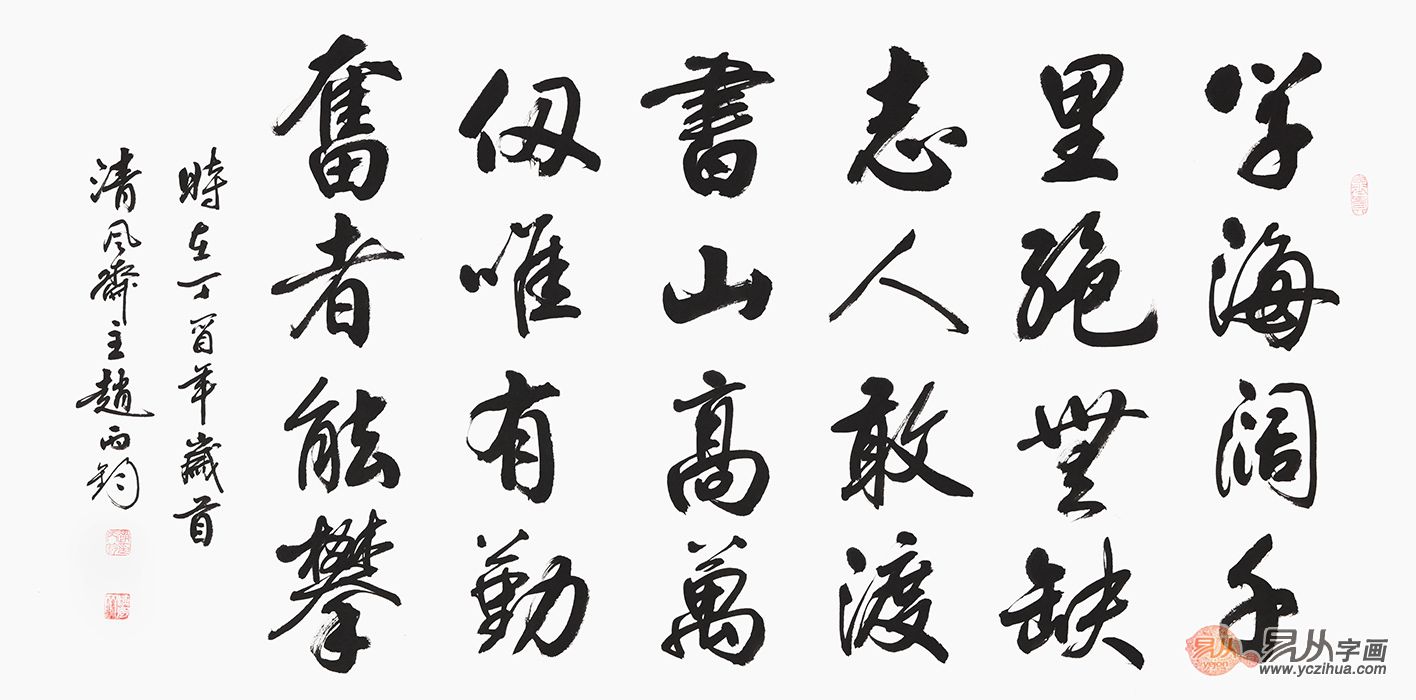 学海阔千
里絶無缺
志人敢渡
書山高萬
仭唯有勤
奮者能攀
時在丁酉年歲首
清风齋主趙鈞
易从字画
www.yczihua.com